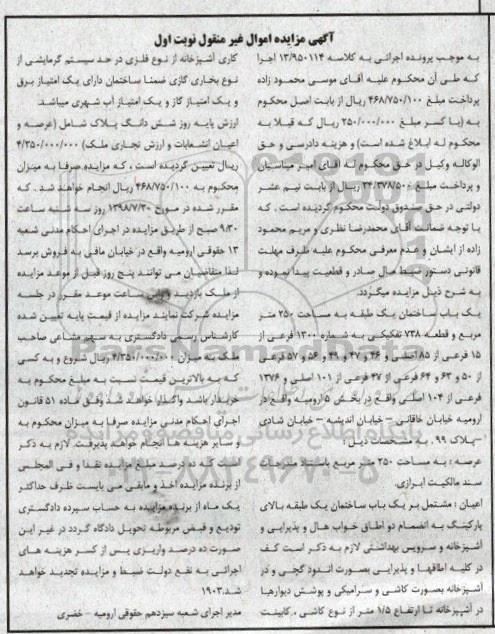 آگهی مزایده اموال غیر منقول نوبت اول
به موجب پرونده اجرائی به کلاسه ۱۳/۹۵۰۱۱۴ اجرا
که طی آن محکوم علیه آقای موسی محمود زاده
پرداخت مبلغ ۴۶۸/۷۵۰/۱۰۰ ریال از بابت اصل محکوم
به (با کسر مبلغ ۲۵۰/۰۰۰/۰۰۰ ریال که قبلا به
محکوم له ابلاغ شده است) و هزینه دادرسی و حق
الوکاله وکیل در حق محکوم له آقای امیر عباسیان
و پرداخت مبلغ ۳۴/۳۷۸/۵۰۰ ریال از بابت نیم عشر
دولتی در حق صندوق دولت محکوم گردیده است . که
با توجه ضمانت آقای محمدرضا نظری و مریم محمود
زاده از ایشان و عدم معرفی محکوم علیه ظرف مهلت
قانونی دستور ضبط مال صادر و قطعیت پیدا نموده و
به شرح ذیل مزایده میگردد.
یک باب ساختمان یک طبقه به مساحت ۲۵۰ متر
مربع و قطعه ۷۳۸ تفکیکی به شماره ۱۳۰۰ فرعی از
۱۵ فرعی از ۸۵ اصلی و ۴۶ و ۴۷ و ۴۹ و ۵۶ و ۵۷ فرعی
از ۵۰ و ۶۳ و ۶۴ فرعی از ۴۷ فرعی از ۱۰۱ اصلی و ۱۳۷۶
فرعی از ۱۰۴ اصلی واقع در بخش ۵ ارومیه واقع در
ارومیه خیابان خاقانی – خیابان اندیشه – خیابان شادی
– پلاک ۹۹ . به مشخصات ذیل :
عرصه : به مساحت ۲۵۰ متر مربع باستناد مندرجات
سند مالکیت ابرازی.
اعیان : مشتمل بر یک باب ساختمان یک طبقه بالای
پارکینگ به انضمام دو اطاق خواب هال و پذیرایی و
آشپزخانه و سرویس بهداشتی لازم به ذکر است کف
در کلیه اطاقها و پذیرایی بصورت اندود گچی و در
آشپزخانه بصورت کاشی و سرامیکی و پوشش دیوارها
در آشپزخانه تا ارتفاع ۱/۵ متر از نوع کاشی ، کابینت
کاری آشپزخانه از نوع فلزی در حد سیستم گرمایشی از
نوع بخاری گازی ضمنا ساختمان دارای یک امتیاز برق
و یک امتیاز گاز و یک امتیاز آب شهری میباشد.
ارزش پایه روز شش دانگ پلاک شامل (عرصه و
اعیان انشعابات و ارزش تجاری ملک) ۴/۳۵۰/۰۰۰/۰۰۰
ریال تعیین گردیده است ، که مزایده صرفا به میزان
محکوم به ۴۶۸/۷۵۰/۱۰۰ ریال انجام خواهد شد . که
مقرر شده در مورخ ۱۳۹۸/۷/۳۰ روز سه شنبه ساعت
۹/۳۰ صبح از طریق مزایده در اجرای احکام مدنی شعبه
۱۳ حقوقی ارومیه واقع در خیابان مافی به فروش برسد
لذا متقاضیان می توانند پنج روز قبل از موعد مزایده
از ملک بازدید و راس ساعت موعد مقرر در جلسه
مزایده شرکت نمایند مزایده از قیمت پایه تعیین شده
کارشناس رسمی دادگستری به سهم مشاعی صاحب
ملک به میزان ۴/۳۵۰/۰۰۰/۰۰۰ ریال شروع و به کسی
که به بالاترین قیمت نسبت به مبلغ محکوم به
خریدار باشد واگذار خواهد شد وفق ماده ۵۱ قانون
اجرای احکام مدنی مزایده صرفا به میزان محکوم به
و سایر هزینه ها انجام خواهد پذیرفت. لازم به ذکر
است که ده درصد مبلغ مزایده نقدا و فی المجلس
از برنده مزایده اخذ و مابقی می بایست ظرف حداکثر
یک ماه از برنده مزایده به حساب سپرده دادگستری
تودیع و قبض مربوطه تحویل دادگاه گردد در غیر این
صورت ده درصد واریزی پس از کسر هزینه های
اجرائی به نفع دولت ضبط و مزایده تجدید خواهد
شد.۱۹۰۳
مدیر اجرای شعبه سیزدهم حقوقی ارومیه – خضری